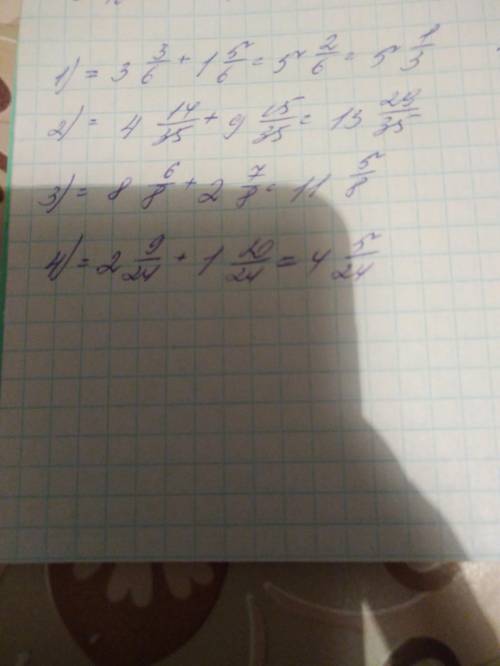 1) = 3 3/6 + 1 5/6 = 5 2/6 = 5 1/3
2) = 4 14/35 + 9 15/35 = 13 29/35
3) = 8 6/8 + 2 7/8 = 11 5/8
4) = 2 9/24 + 1 20/24 = 4 5/24